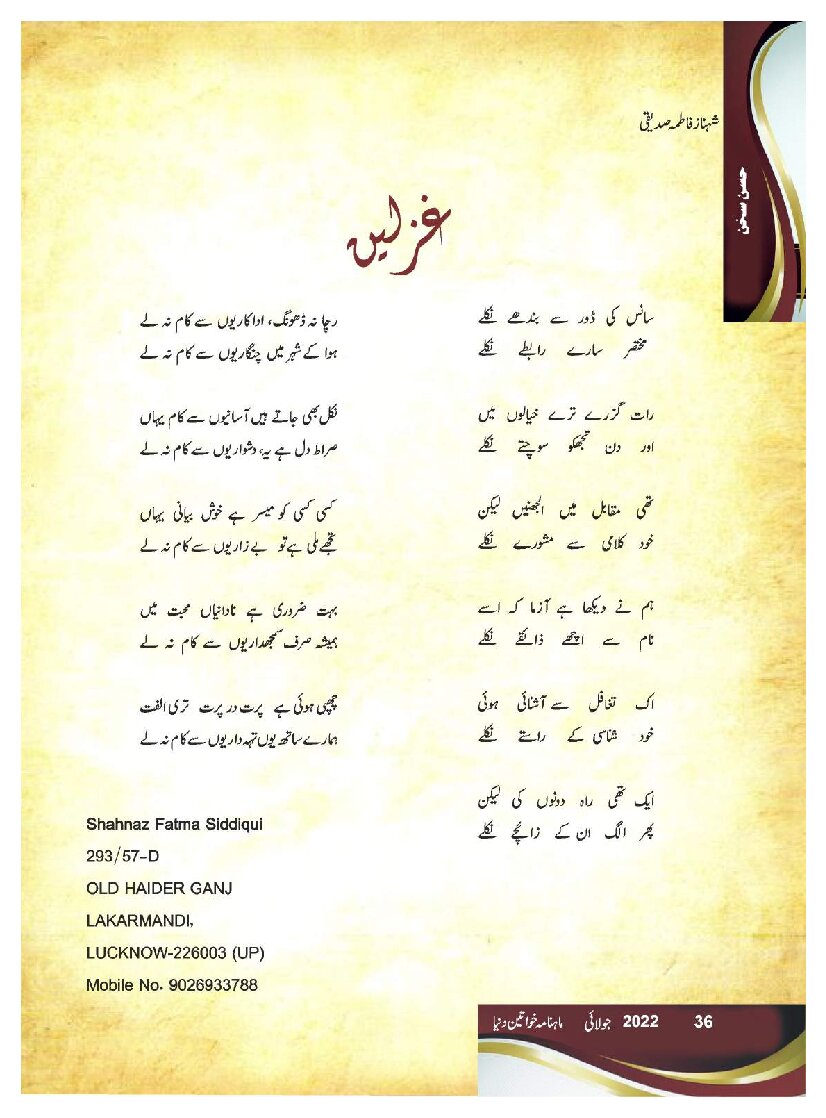 شہناز فاطمہ صدیقی
حسن سخن
غزلیں
سانس کی ڈور سے بندھے نکلے
مختصر سارے رابطے نکلے
رات گزرے ترے خیالوں میں
اور دن تجھکو سوچتے نکلے
تھی مقابل میں الجھنیں لیکن
خود کلامی سے مشورے نکلے
ہم نے دیکھا ہے آزما کہ اسے
نام سے اچھے ذائقے نکلے
اک تغافل سے آشنائی ہوئی
خود شناسی کے راستے نکلے
ایک تھی راہ دونوں کی لیکن
پھر الگ ان کے زائچے نکلے
رچا نہ ڈھونگ، اداکاریوں سے کام نہ لے
ہوا کے شہر میں چنگاریوں سے کام نہ لے
نکل بھی جاتے ہیں آسانیوں سے کام یہاں
صراط دل ہے یہ، دشواریوں سے کام نہ لے
کسی کسی کو میسر ہے خوش بیانی یہاں
تجھے ملی ہے تو بے زاریوں سے کام نہ لے
بہت ضروری ہے نادانیاں محبت میں
ہمیشہ صرف سمجھداریوں سے کام نہ لے
چھپی ہوئی ہے پرت در پرت تری الفت
ہمارے ساتھ یوں تہہ داریوں سے کام نہ لے
Shahnaz Fatma Siddiqui
293/57-D
OLD HAIDER GANJ
LAKARMANDI,
LUCKNOW-226003 (UP)
Mobile No. 9026933788
ماہنامہ خواتین دنیا جولائی 2022 36